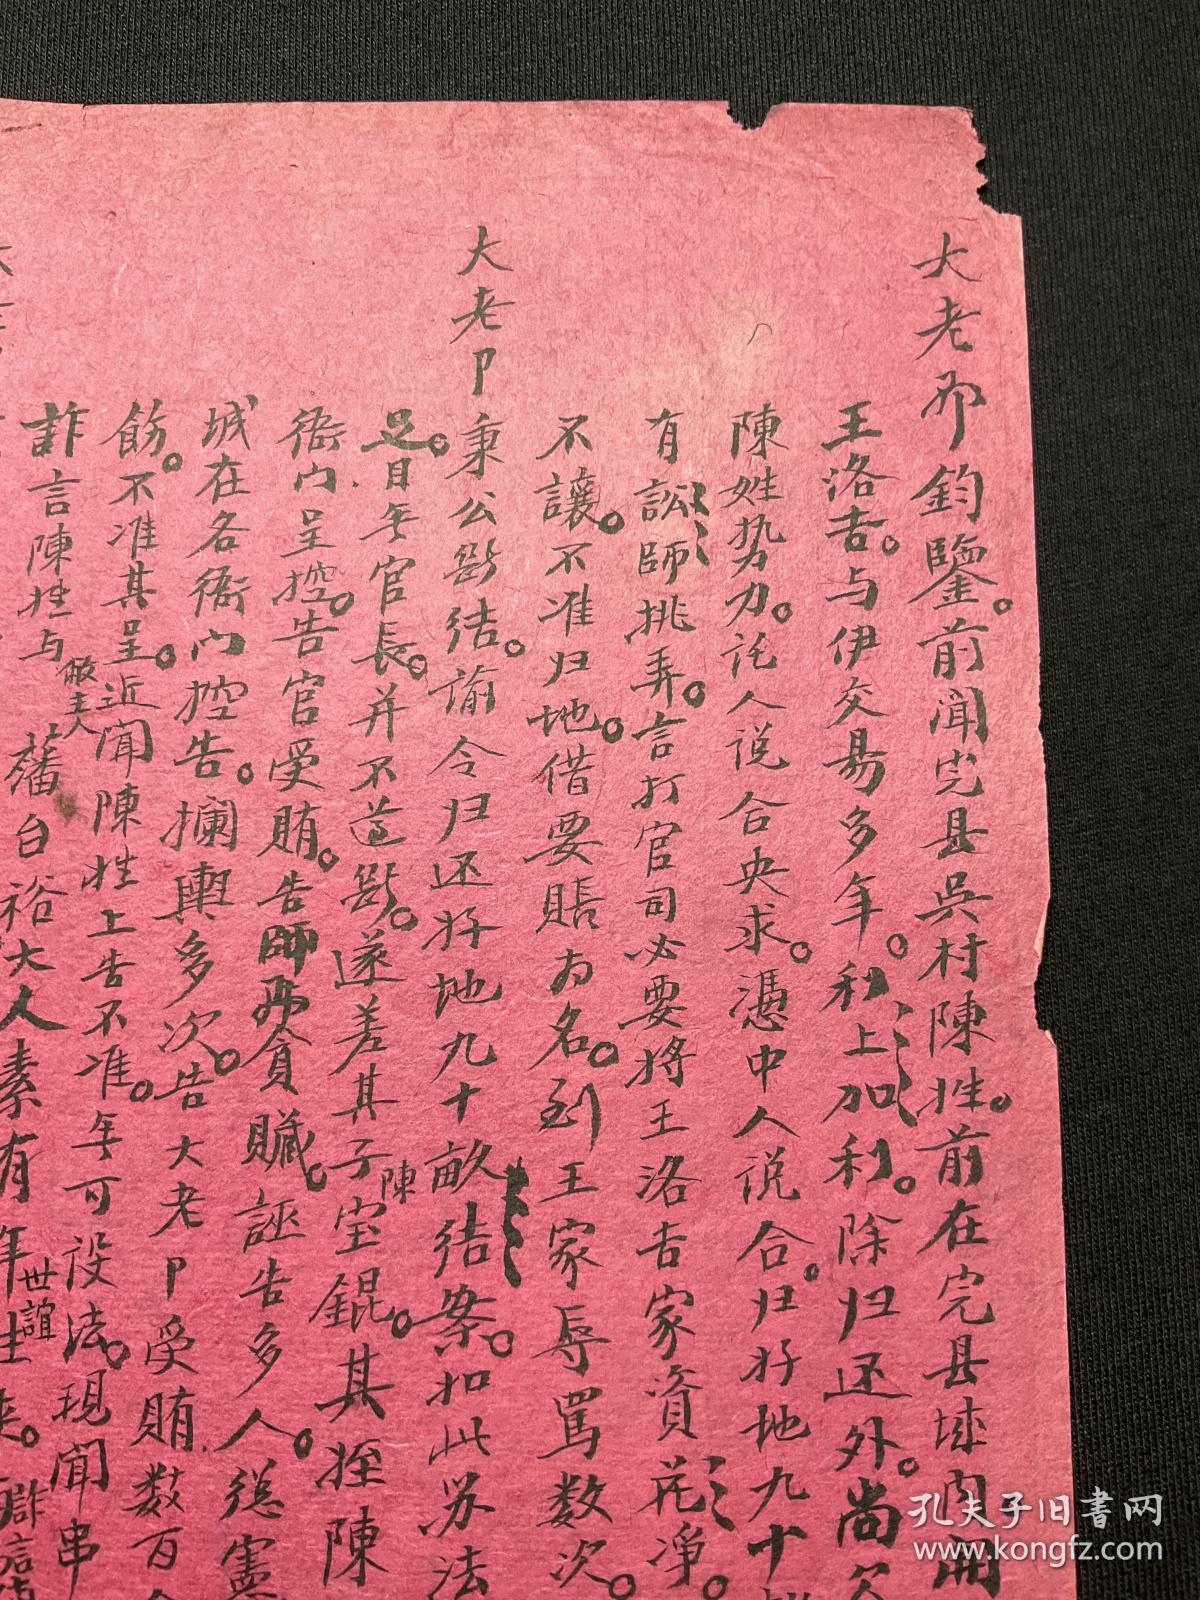 大老卩鈞鑒。前闻完县吳村陳姓。前在完县城内開
王洛吉。与伊交易多年。利上加利。除归还外。尚欠
陳姓势力。託人说合央求。憑中人说合。归好地九十
有訟師挑弄。言打官司必要將王洛吉家資花净。
不讓。不准归地。借要賬为名。到王家辱罵数次。
大老卩秉公断结。谕令归还好地九十畝结案。如此办法
足。目無官長。并不遵断。遂差其子陳宝錕。其侄陳
衙门呈控。告官受賄。告師爷貪贓。誣告多人。總憲
城在各衙门控告。攔輿多次。告大老卩受賄数百
餙。不准其呈。近闻陳姓上告不准。無可设法。現闻串
詐言陳姓与敝主人藩台裕大人素有年世誼往来。
孔夫子旧书网
www.kongfz.com